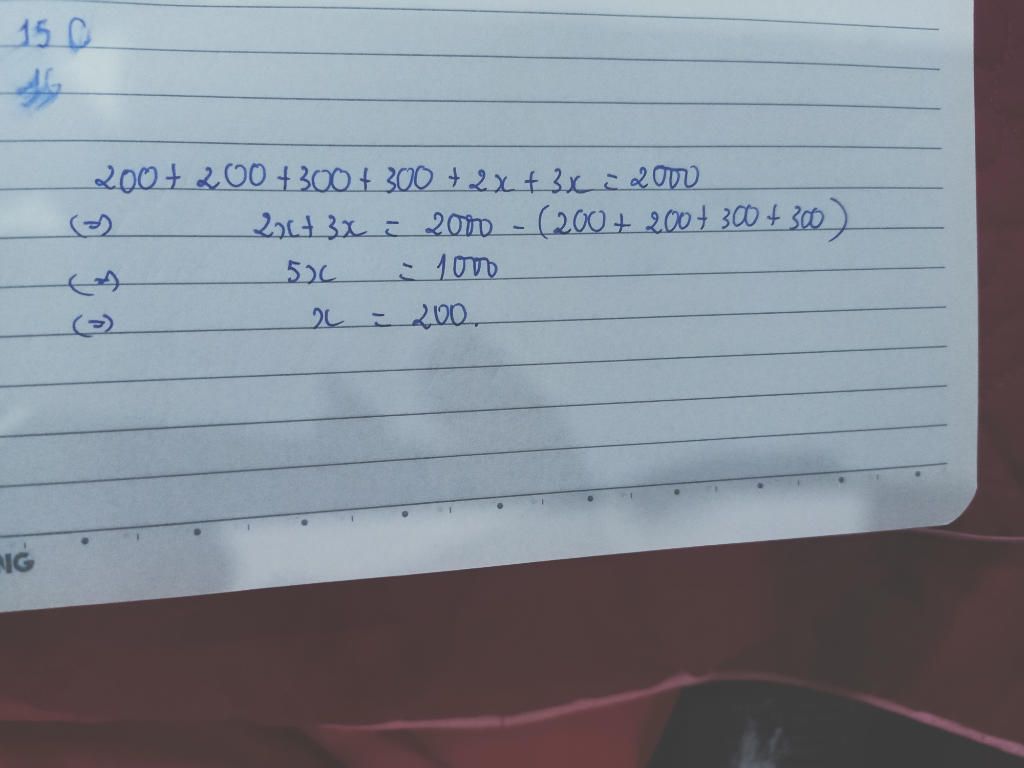 15 C
200 + 200 + 300 + 300 + 2x + 3x = 2000
(=) 2x + 3x = 2000 - (200 + 200 + 300 + 300)
(=) 5x = 1000
(=) x = 200.
NG